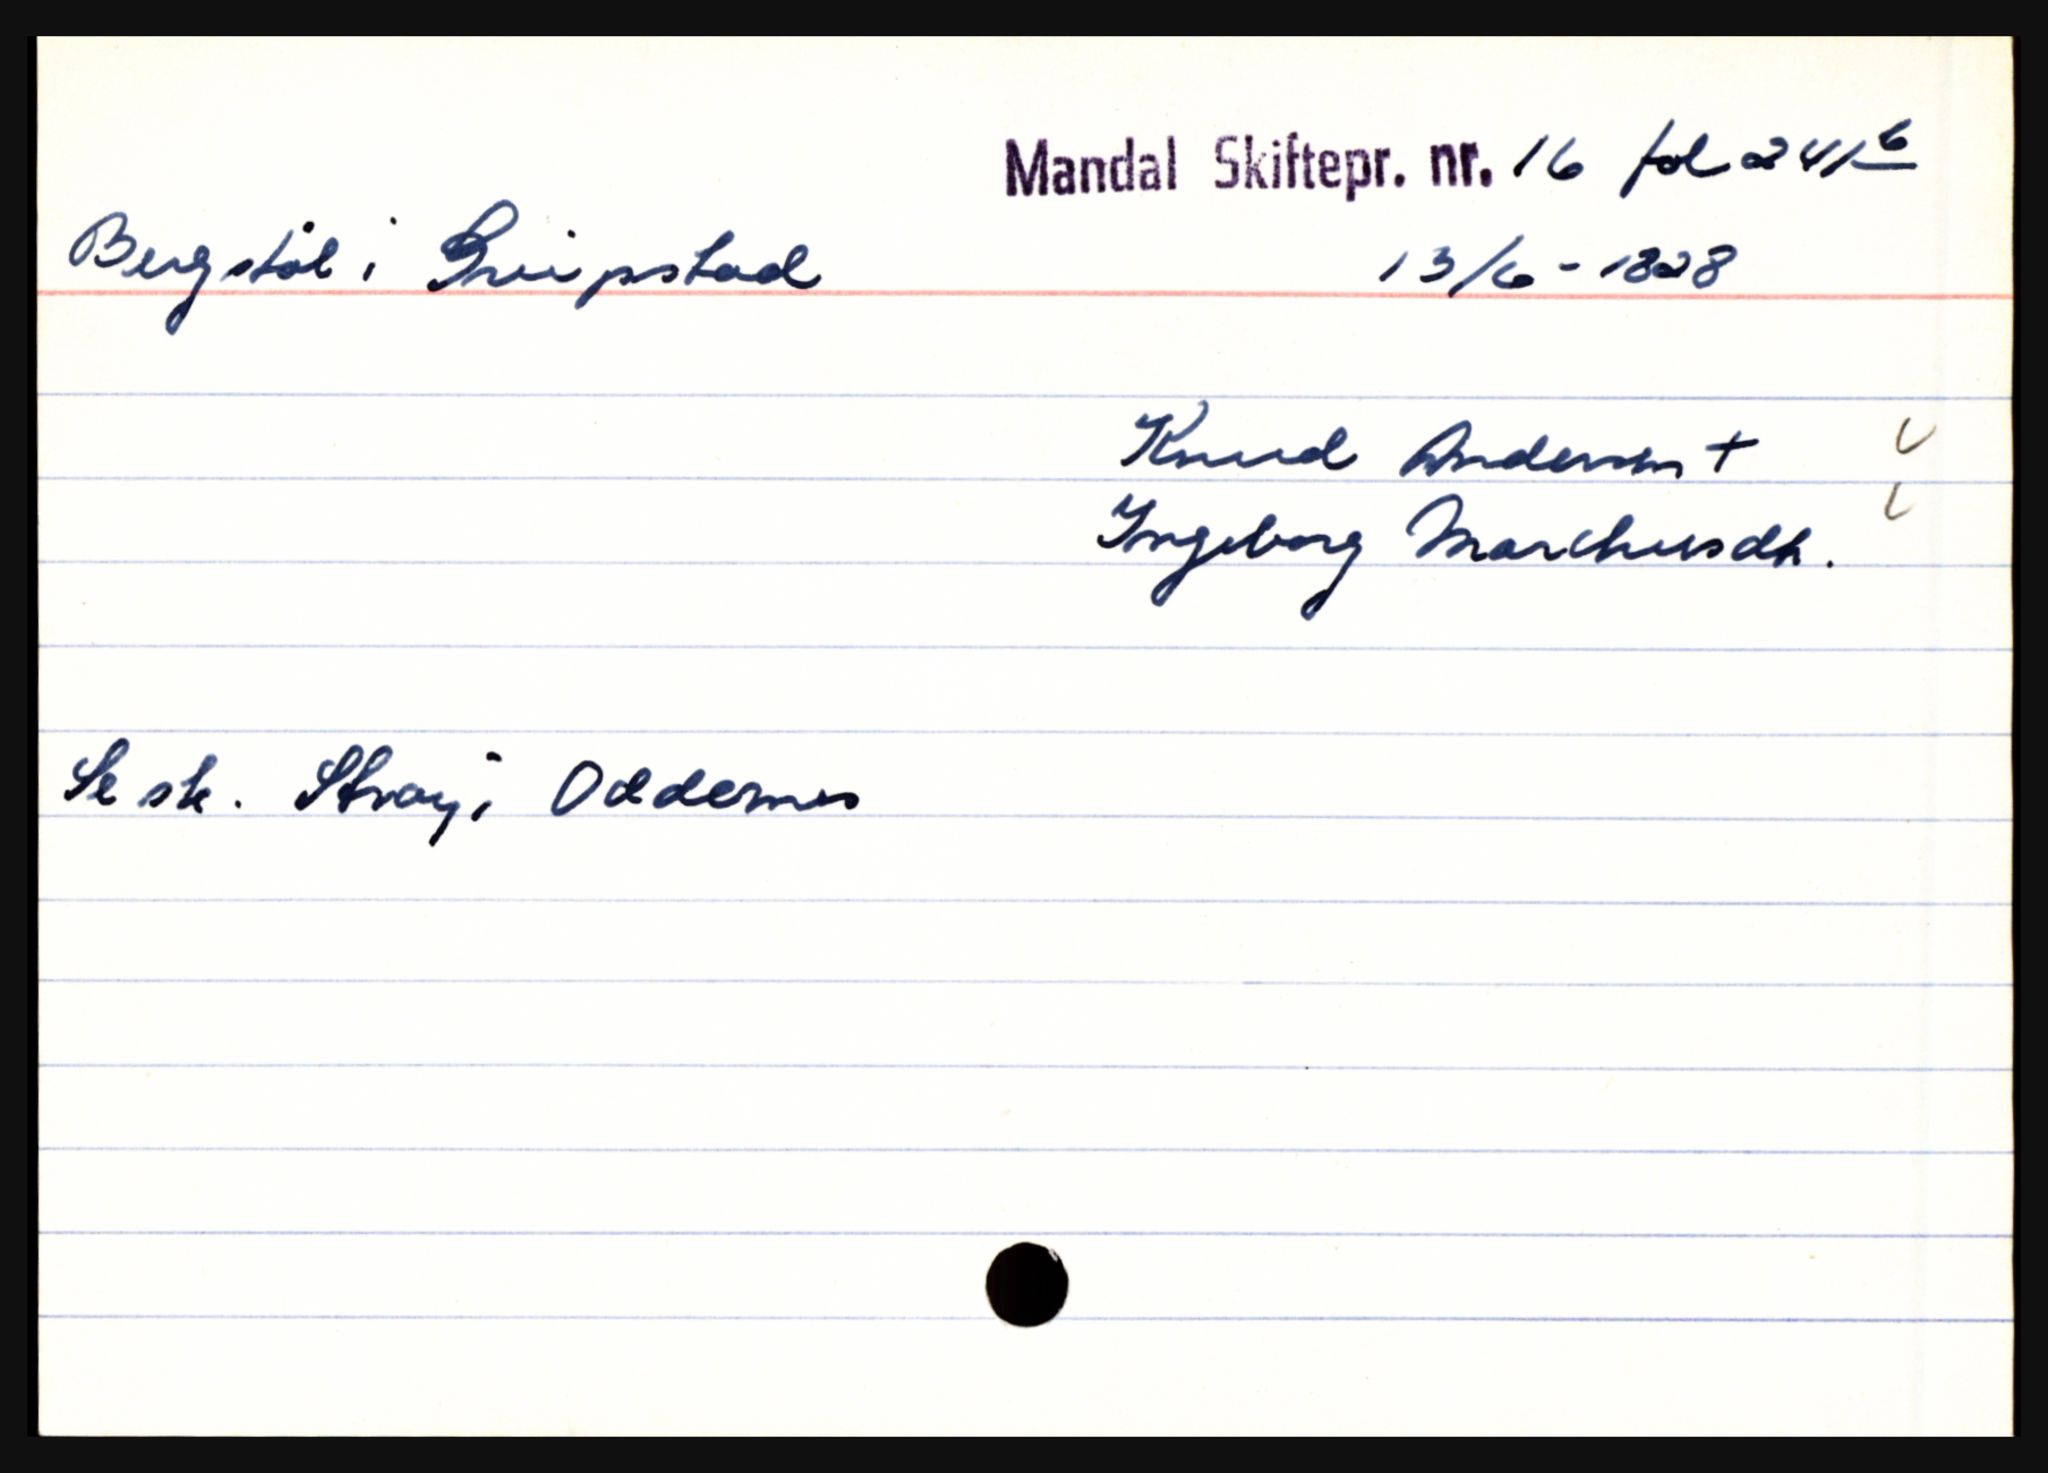 Mandal Skiftepr. nr. 16 fol 241 b
Bergstøl i Greipstad 13/6 - 1828
Knud Andersen +
Ingeborg Marchusdtr.
Se sk. Stray i Oddernes